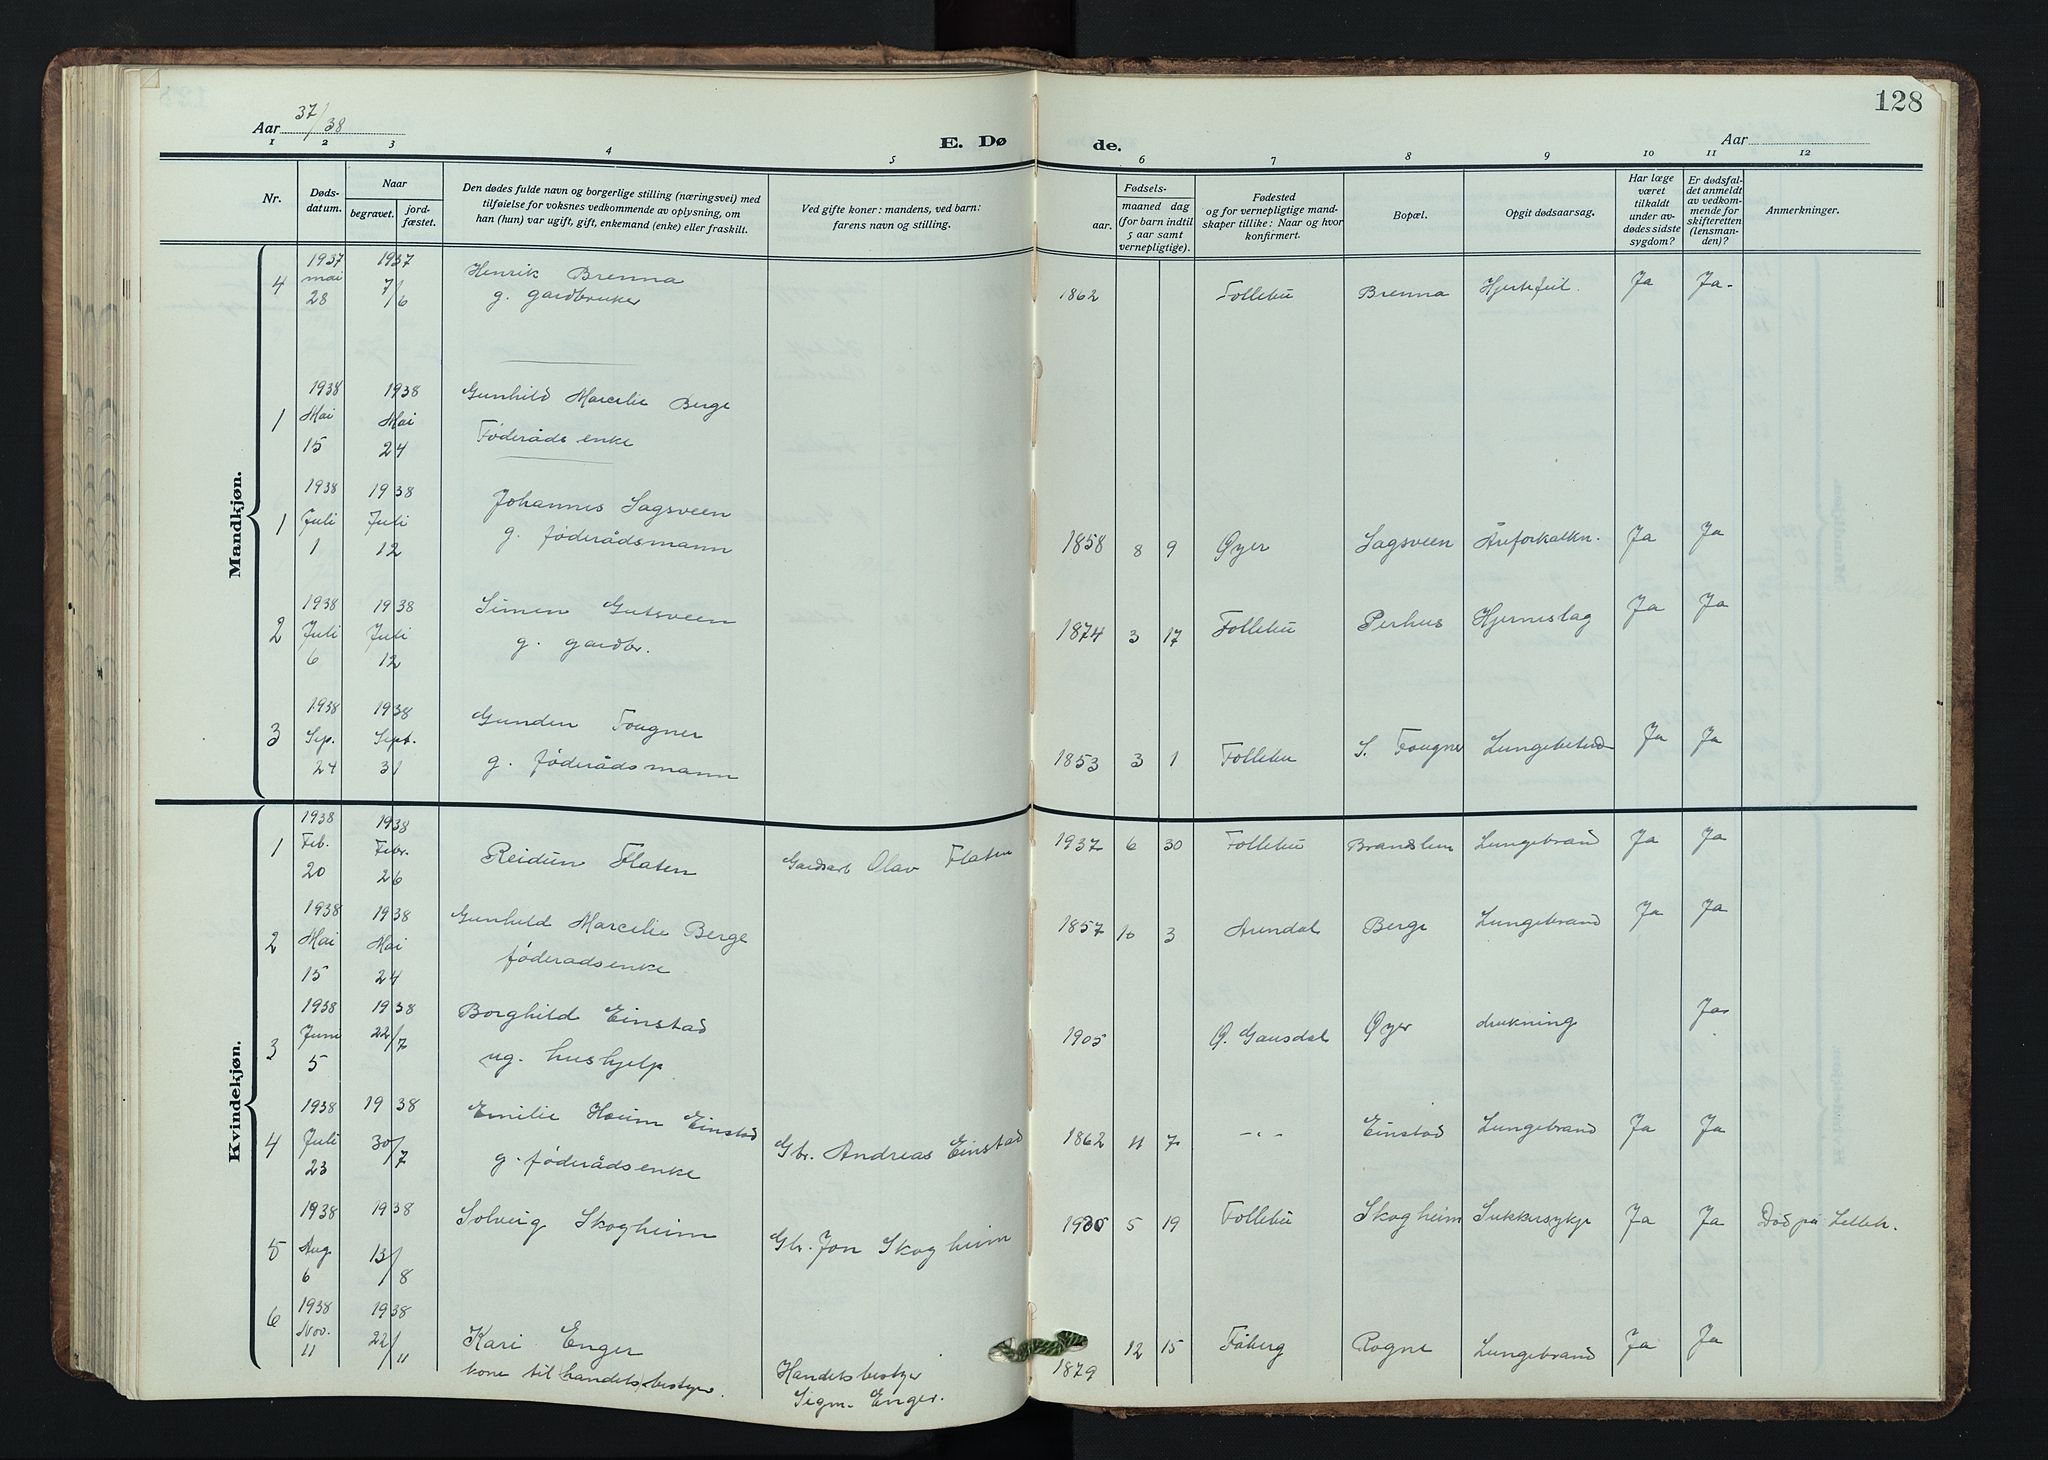 Aar 37/38
E. Dø
de.
Aar
128
1 2 3 4 5 6 7 8 9 10 11 12
Nr.
Døds-
datum.
Naar
begravet.
jord-
fæstet.
Den dødes fulde navn og borgerlige stilling (næringsvei) med
tilføielse for voksnes vedkommende av oplysning, om
han (hun) var ugift, gift, enkemand (enke) eller fraskilt.
Ved gifte koner: mandens, ved barn:
farens navn og stilling.
Fødsels-
aar.
maaned dag
(for barn indtil
5 aar samt
vernepligtige).
Fødested
og for vernepligtige mand-
skaper tillike: Naar og hvor
konfirmert.
Bopæl.
Opgit dødsaarsag.
Har læge
været
tilkaldt
under av-
dødes sidste
sygdom?
Er dødsfal-
det anmeldt
av vedkom-
mende for
skifteretten
(lensman-
den)?
Anmerkninger.
Mandkjøn.
4 1937 mai 28 1937 7/6 Henrik Brenna
g. gardbruker
1862 Follebu Brenna Hjertefeil. Ja Ja.
1 1938 Mai 15 1938 Mai 24 Gunhild Marcelie Berge
Føderåds enke
1 1938 Juli 1 1938 Juli 12 Johannes Sagsveen
g. føderådsmann
1858 8 9 Øyer Sagsveen Åreforkalkn. Ja Ja
2 1938 Juli 6 1938 Juli 12 Simen Gutsveen
g. gardbr.
1874 3 17 Follebu Perhus Hjerneslag Ja Ja
3 1938 Sep. 24 1938 Sept. 31 Gunden Fougner
g. føderådsmann
1853 3 1 Follebu S. Fougner Lungebetend Ja Ja
Kvindekjøn.
1 1938 Feb. 20 1938 Febr. 26 Reidun Flaten
Gardsarb Olav Flaten
1937 6 30 Follebu Brandslun Lungebrand Ja Ja
2 1938 Mai 15 1938 Mai 24 Gunhild Marcelie Berge
føderadsenke
1857 10 3 Arendal Berge Lungebrand Ja Ja
3 1938 Juni 5 1938 22/7 Borghild Einstad
ug. hushjelp
1905 Ø. Gausdal Øyer drukning Ja
4 1938 Juli 23 1938 30/7 Emilie Einstad
g. føderådsenke
Gbr. Andreas Einstad
1862 11 7 -"- Einstad Lungebrand Ja Ja
5 1938 Aug 6 1938 13/8 Solveig Skogheim
Gbr. Jon Skogheim
5 19 Follebu Skogheim Sukkersyke Ja Ja Død på Lilleh.
6 1938 Nov. 11 1938 22/11 Kari Enger
kone til handelsbestyr.
Handelsbestyr
Sigm. Enger.
1879 12 15 Fåberg Rogne Lungebrand Ja Ja